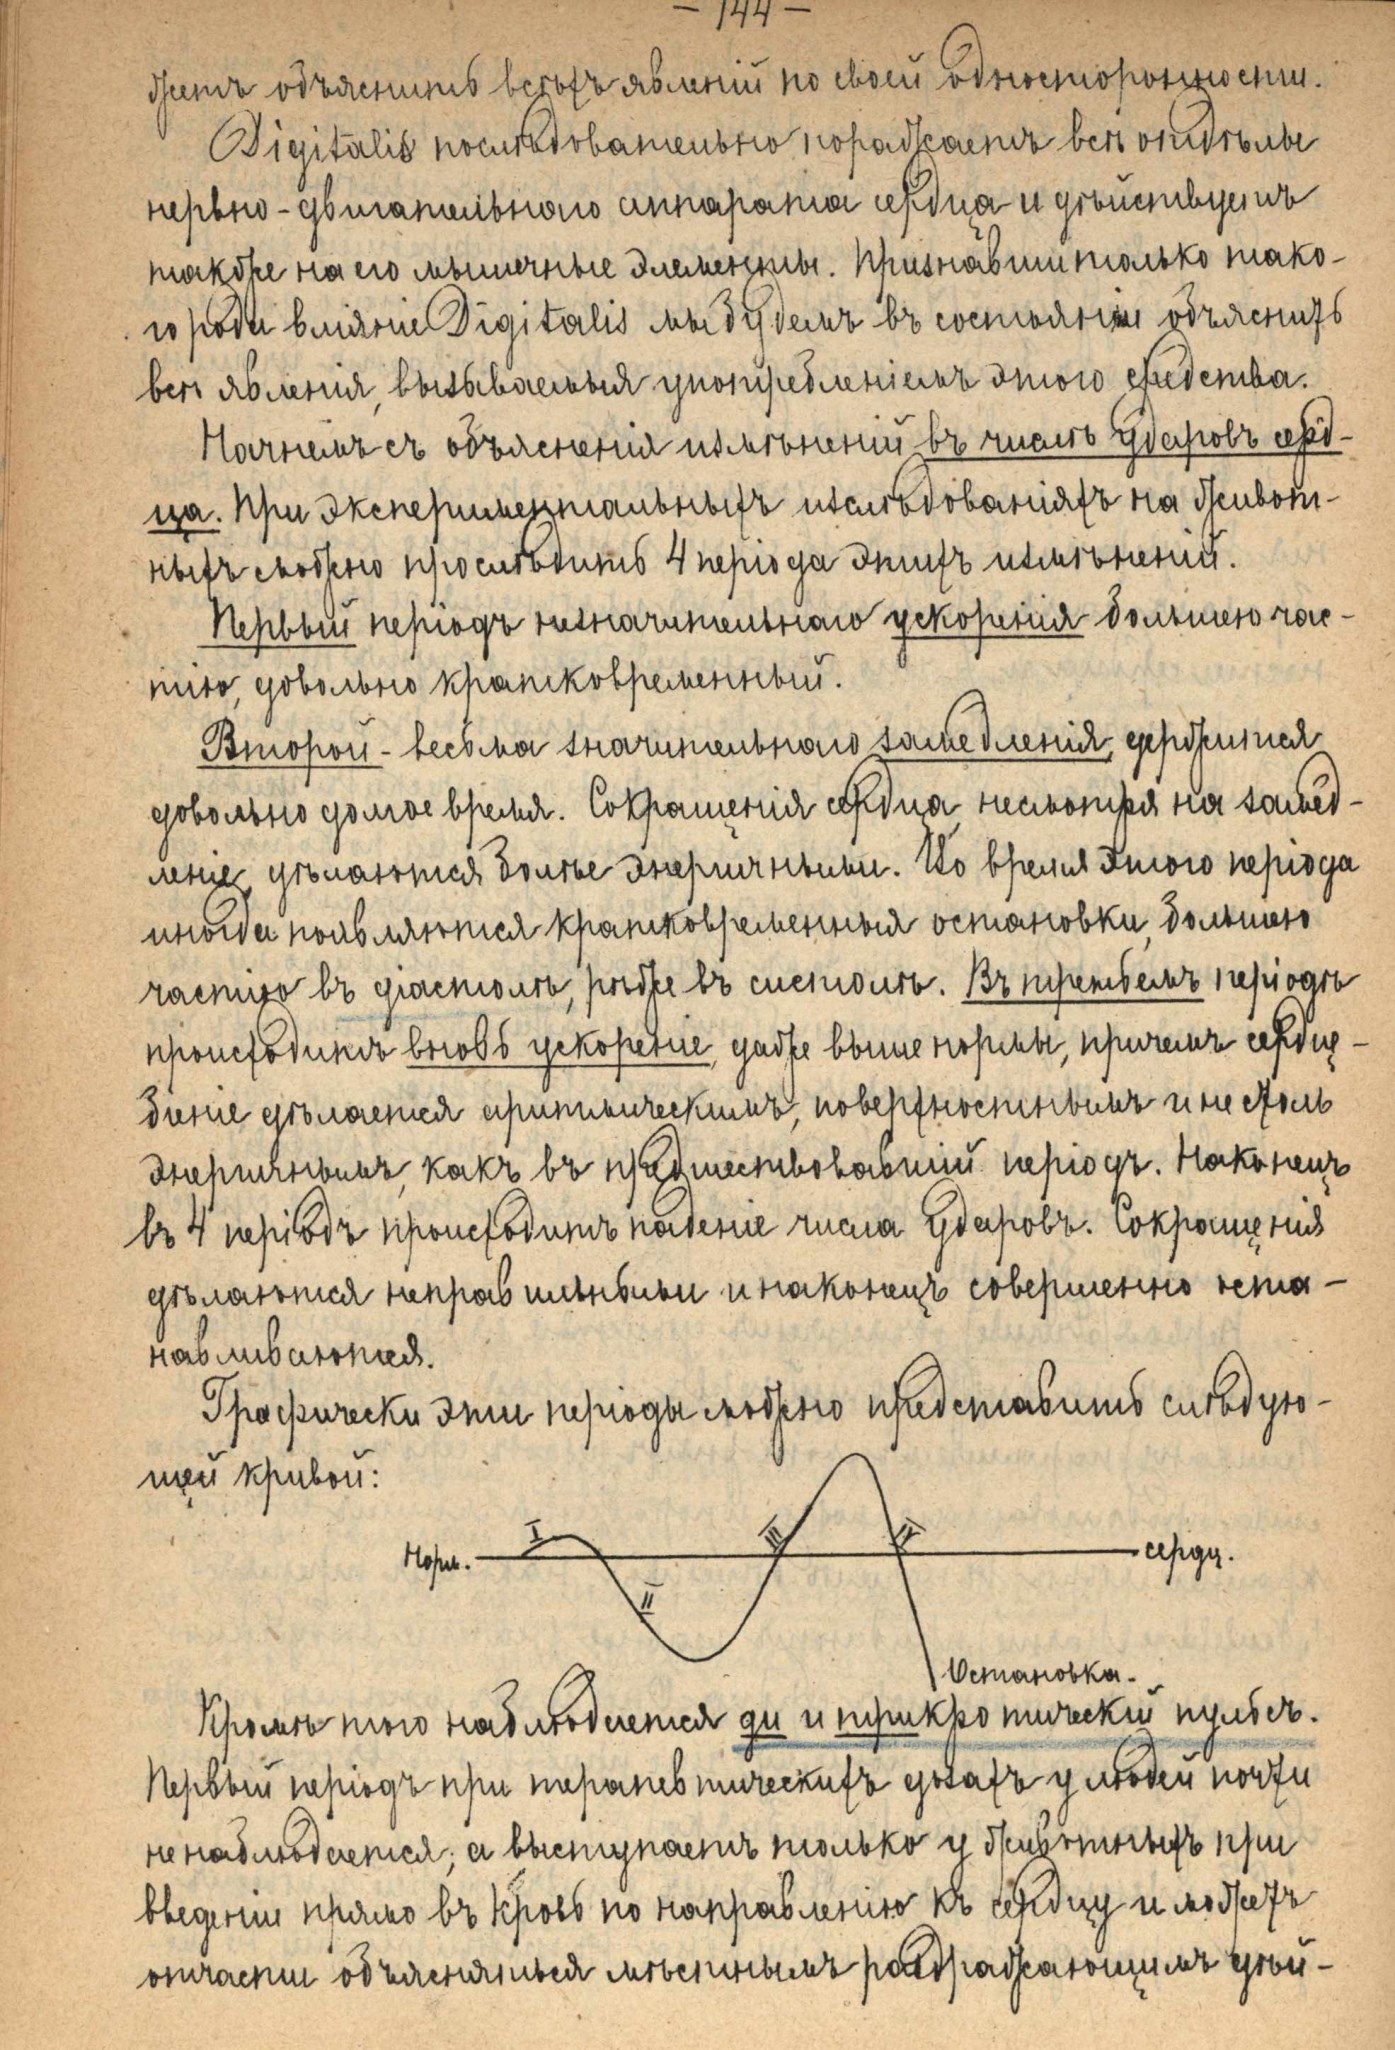 — 144 —
жетъ объяснить всѣхъ явленій по своей односторонности.
Digitalis послѣдовательно поражаетъ всѣ отдѣлы
нервно-двигательнаго аппарата сердца и дѣйствуетъ
также на его мышечные элементы. Признавши только тако-
го рода вліяніе Digitalis мы будемъ въ состояніи объяснить
всѣ явленія, вызываемыя употребленіемъ этого средства.
Начнемъ съ объясненія измѣненій въ числѣ ударовъ серд-
ца. При экспериментальныхъ изслѣдованіяхъ на живот-
ныхъ можно прослѣдить 4 періода этихъ измѣненій.
Первый періодъ незначительнаго ускоренія большею час-
тію, довольно кратковременный.
Второй - весьма значительнаго замедленія, держится
довольно долгое время. Сокращенія сердца, несмотря на замед-
леніе, дѣлаются болѣе энергичными. Во время этого періода
иногда появляются кратковременныя остановки, большею
частію въ діастолѣ, рѣже въ систолѣ. Въ третьемъ періодѣ
происходитъ вновь ускореніе, даже выше нормы, причемъ сердце-
біеніе дѣлается аритмическимъ, поверхностнымъ и не столь
энергичнымъ, какъ въ предшествовавшій періодъ. Наконецъ
въ 4 періодъ происходитъ паденіе числа ударовъ. Сокращенія
дѣлаются неправильными и наконецъ совершенно оста-
навливаются.
Графически эти періоды можно представить слѣдую-
щей кривой:
I III IV
Норм. сердц.
II
Остановка.
Кромѣ того наблюдается ди и трикротическій пульсъ.
Первый періодъ при терапевтическихъ дозахъ у людей почти
не наблюдается; а выступаетъ только у животныхъ при
введеніи прямо въ кровь по направленію къ сердцу и можетъ
отчасти объясняться мѣстнымъ раздражающимъ дѣй-